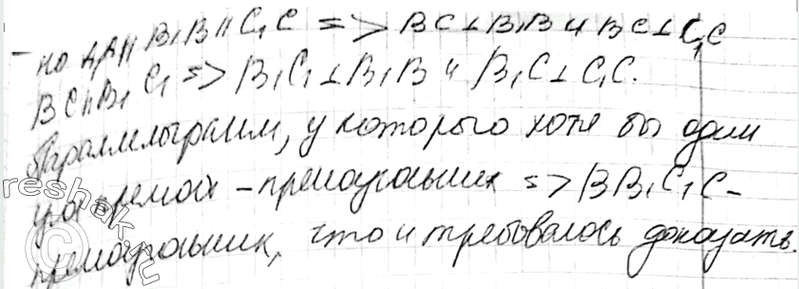 но AA₁ || B₁B || C₁C => BC ⊥ B₁B и BC ⊥ C₁C
BC || B₁C₁ => B₁C₁ ⊥ B₁B и B₁C ⊥ C₁C.
Параллелограмм, у которого хотя бы один
угол прямой - прямоугольник => BB₁C₁C -
прямоугольник, что и требовалось доказать.
reshak